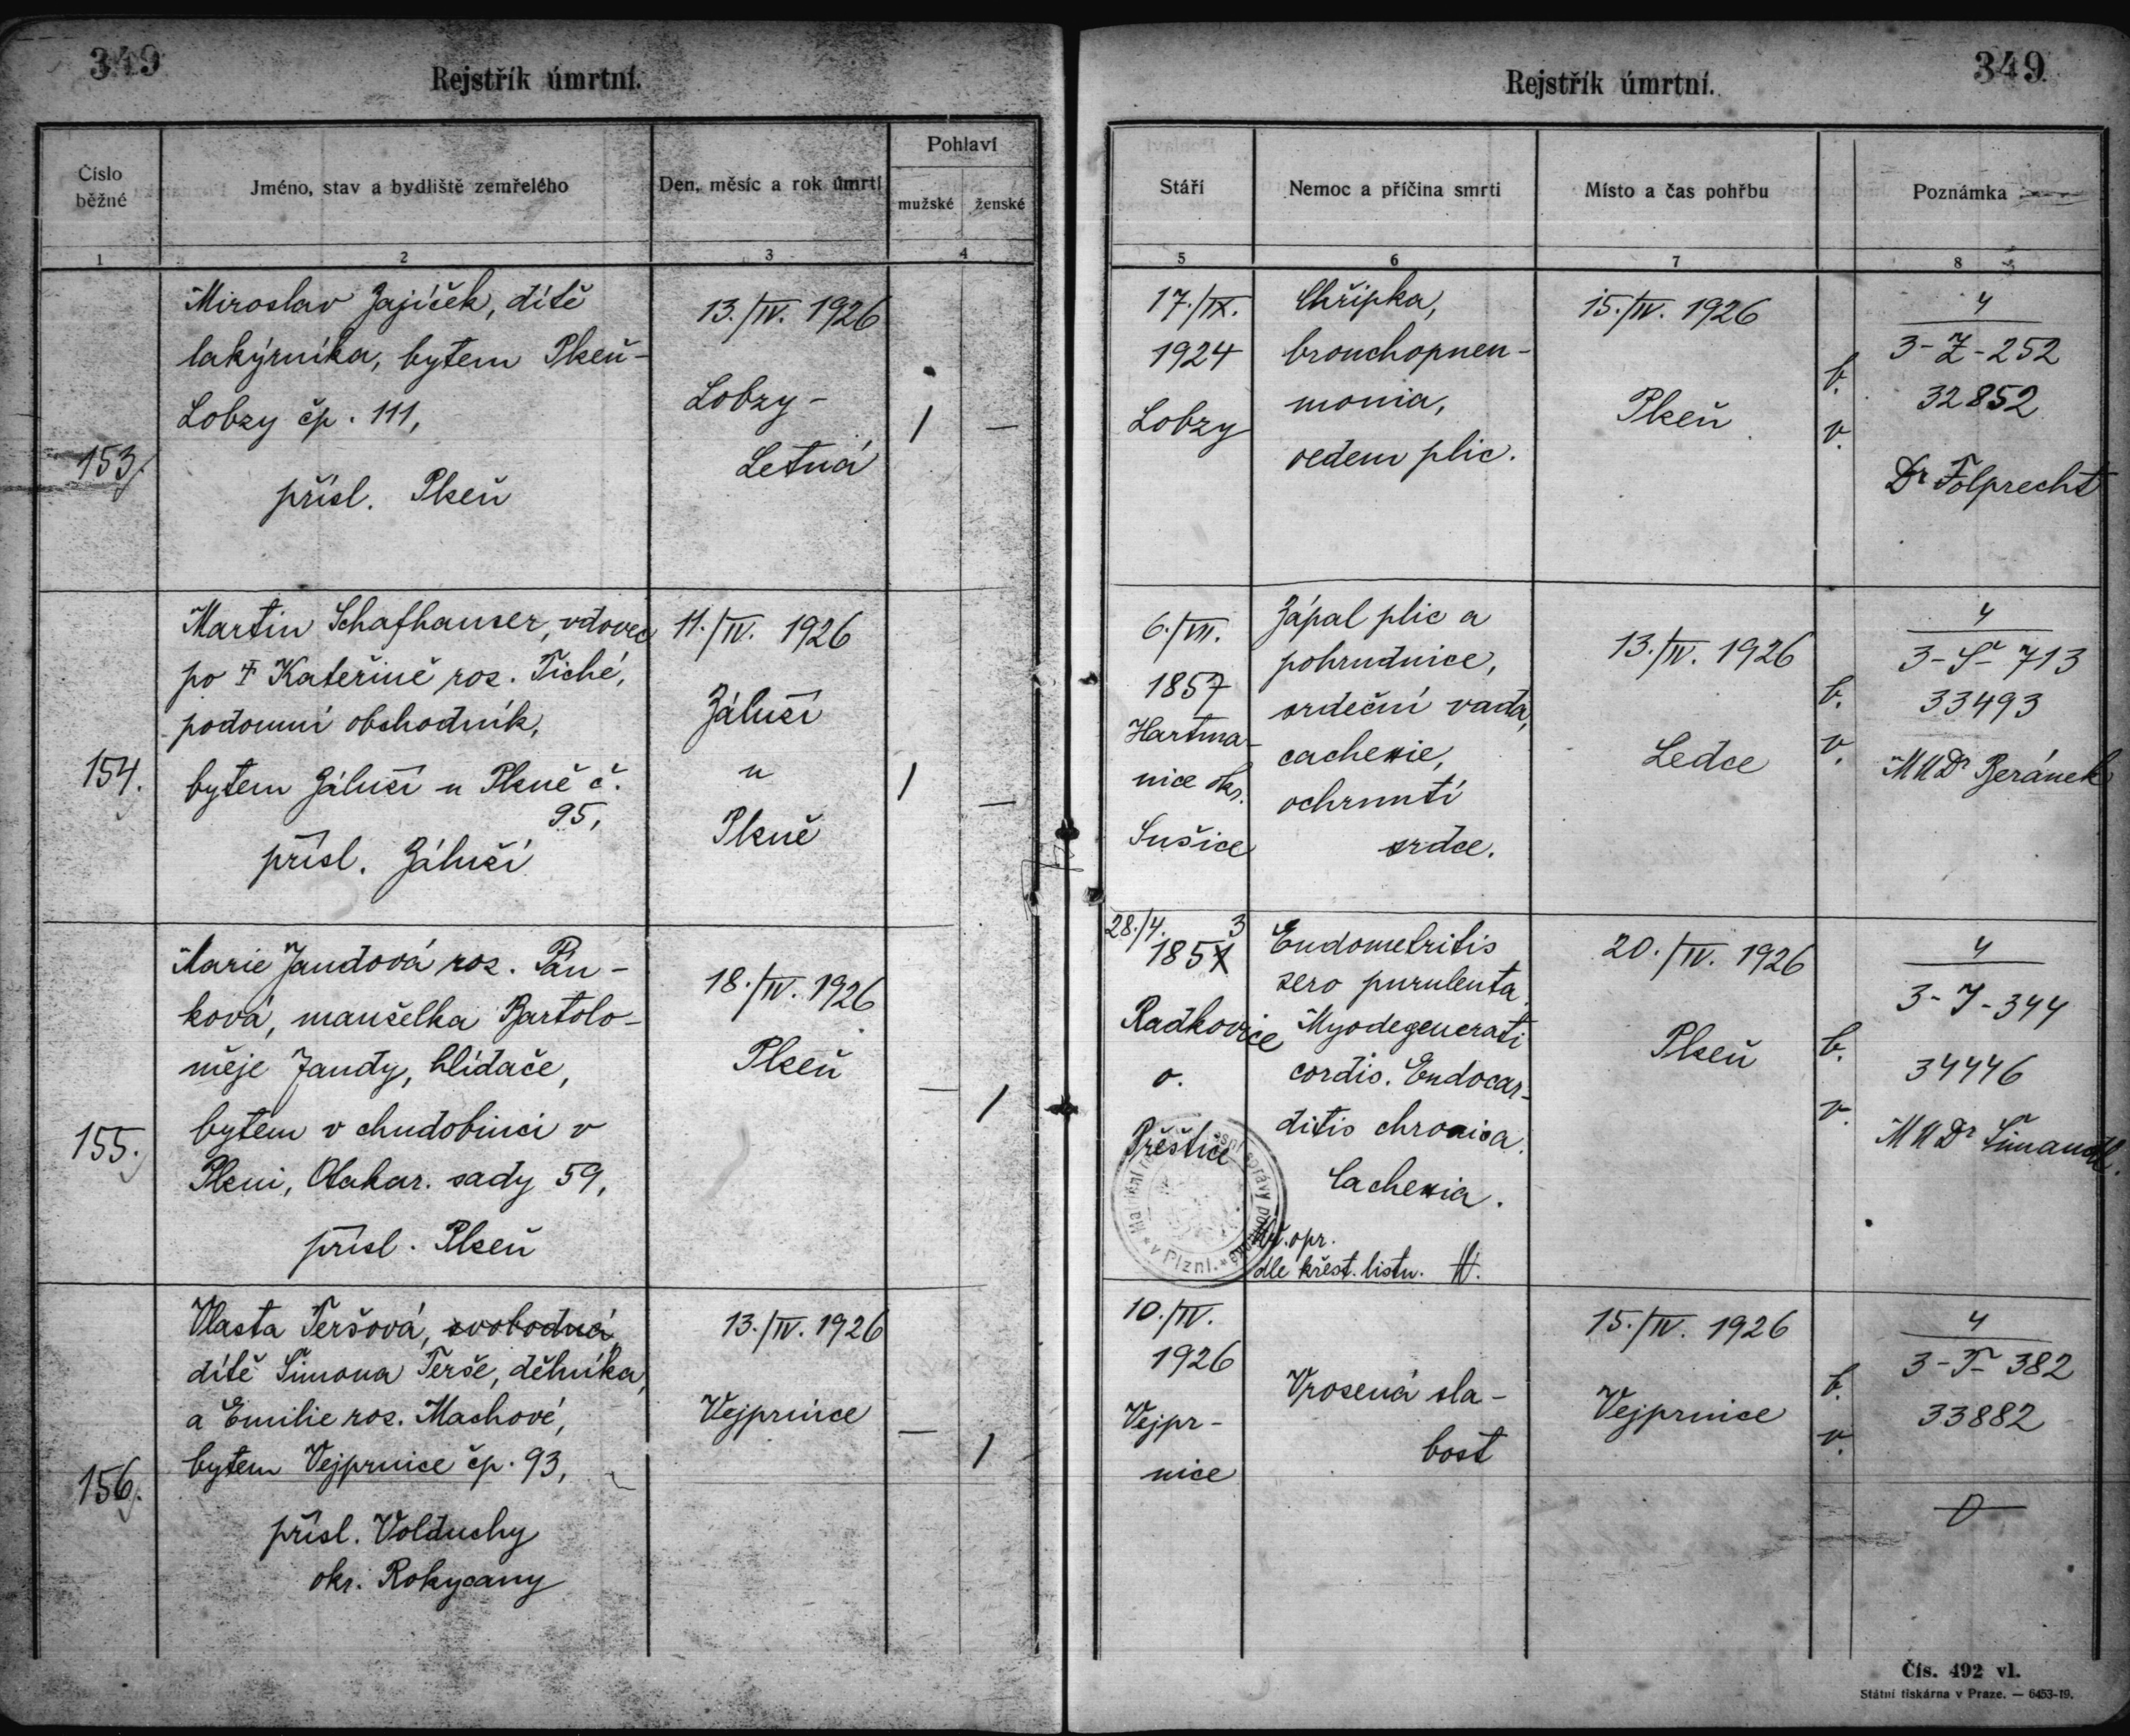 349
Rejstřík úmrtní.
Číslo
běžné
Jméno, stav a bydliště zemřelého
Den, měsíc a rok úmrtí
Pohlaví
mužské
ženské
1
2
3
4
Miroslav Zajíček, dítě
lakýrníka, bytem Plzeň-
Lobzy čp. 111,
153.
přísl. Plzeň
13./IV. 1926
Lobzy-
Letná
/
—
Martin Schafhauser, vdovec
po † Kateřině roz. Tiché,
podomní obchodník,
154.
bytem Záluží u Plzně č.
95,
přísl. Záluží
11./IV. 1926
Záluží
u
Plzně
/
—
Marie Jandová roz. Pán-
ková, manželka Bartolo-
měje Jandy, hlídače,
bytem v chudobinci v
155.
Plzni, Otakar. sady 59,
přísl. Plzeň
18./IV. 1926
Plzeň
—
/
Vlasta Teršová, svobodná,
dítě Šimona Terše, dělníka,
a Emilie roz. Machové,
bytem Vejprnice čp. 93,
156.
přísl. Volduchy
okr. Rokycany
13./IV. 1926
Vejprnice
—
/
349
Rejstřík úmrtní.
Stáří
Nemoc a příčina smrti
Místo a čas pohřbu
Poznámka
5
6
7
8
17./IX.
1924
Lobzy
Chřipka,
bronchopneu-
monia,
oedem plic.
15./IV. 1926
Plzeň
b.
v.
4
3-Z-252
32852
Dr Folprecht
6./VII.
1857
Hartma-
nice okr.
Sušice
Zápal plic a
pohrudnice,
srdeční vada,
cachexie,
ochrnutí
srdce.
13./IV. 1926
Ledce
b.
v.
4
3-S-713
33493
MUDr Beránek
28./4.
3
1857
Radkovice
o.
Přeštice
Endometritis
sero purulenta.
Myodegenerati
cordis. Endocar-
ditis chronica.
Cachexia.
opr.
dle křest. listu.
v Plzni.
20./IV. 1926
Plzeň
b.
v.
4
3-J-344
34446
MUDr Šimandl.
10./IV.
1926
Vejpr-
nice
Vrozená sla-
bost
15./IV. 1926
Vejprnice
b.
v.
4
3-T-382
33882
Čís. 492 vl.
Státní tiskárna v Praze. — 6453-19.